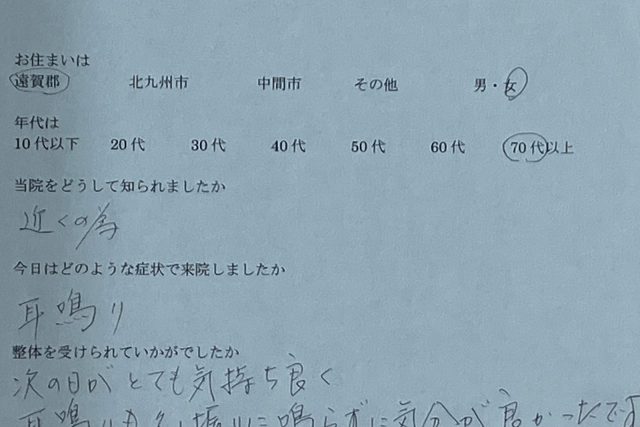 お住まいは
遠賀郡 北九州市 中間市 その他 男・女
年代は
10代以下 20代 30代 40代 50代 60代 70代以上
当院をどうして知られましたか
近くの為
今日はどのような症状で来院しましたか
耳鳴り
整体を受けられていかがでしたか
次の日がとても気持ち良く
耳鳴りも久し振りに鳴らずに気分が良かったです